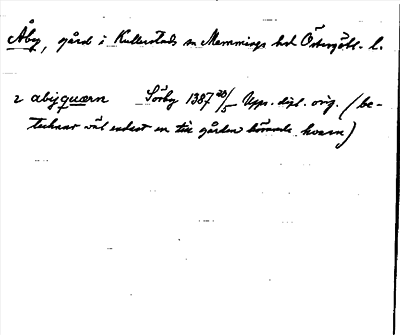 Åby, gård i Kullerstads sn Memmings hd Östergötl. l.
i abyquærn Sörby 1387 20/5 Upps. dipl. orig. (be-
tecknar väl endast en till gården hörande kvarn)